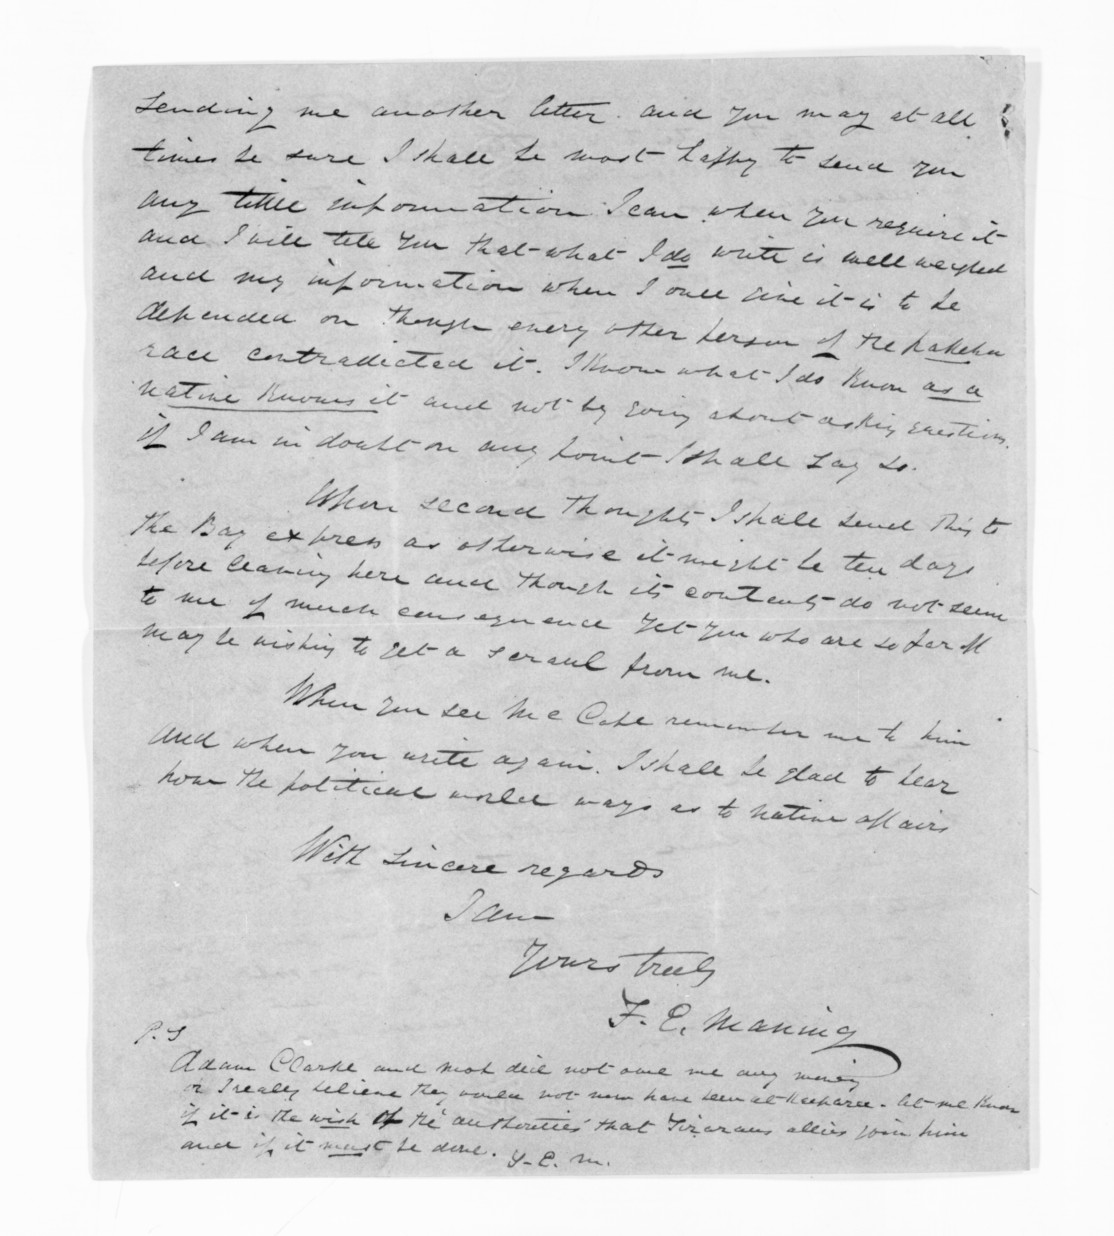 sending me another letter. and you may at all
times be sure I shall be most happy to send you
any little information I can when you require it
and I will tell you that what I do write is well weighed
and my information when I once give it is to be
depended on though every other person of the pakeha
race contradicted it. I know what I do know as a
native knows it and not by going about asking questions.
if I am in doubt on any point I shall say so.
When second thoughts I shall send this to
the Bay express as otherwise it might be ten days
before leaving here and though its contents do not seem
to me of much consequence yet you who are so far off
may be wishing to get a scrawl from me.
When you see Mc Cabe remember me to him
and when you write again. I shall be glad to hear
how the political world ways as to native affairs
With sincere regards
I am
Yours truly
F. E. Maning
P.S
Adam Clarke and did not owe me any money
or I really believe they would not now have been at let me know
if it is the wish of the authorities that allies join him
and if it must be done. F. E. M.